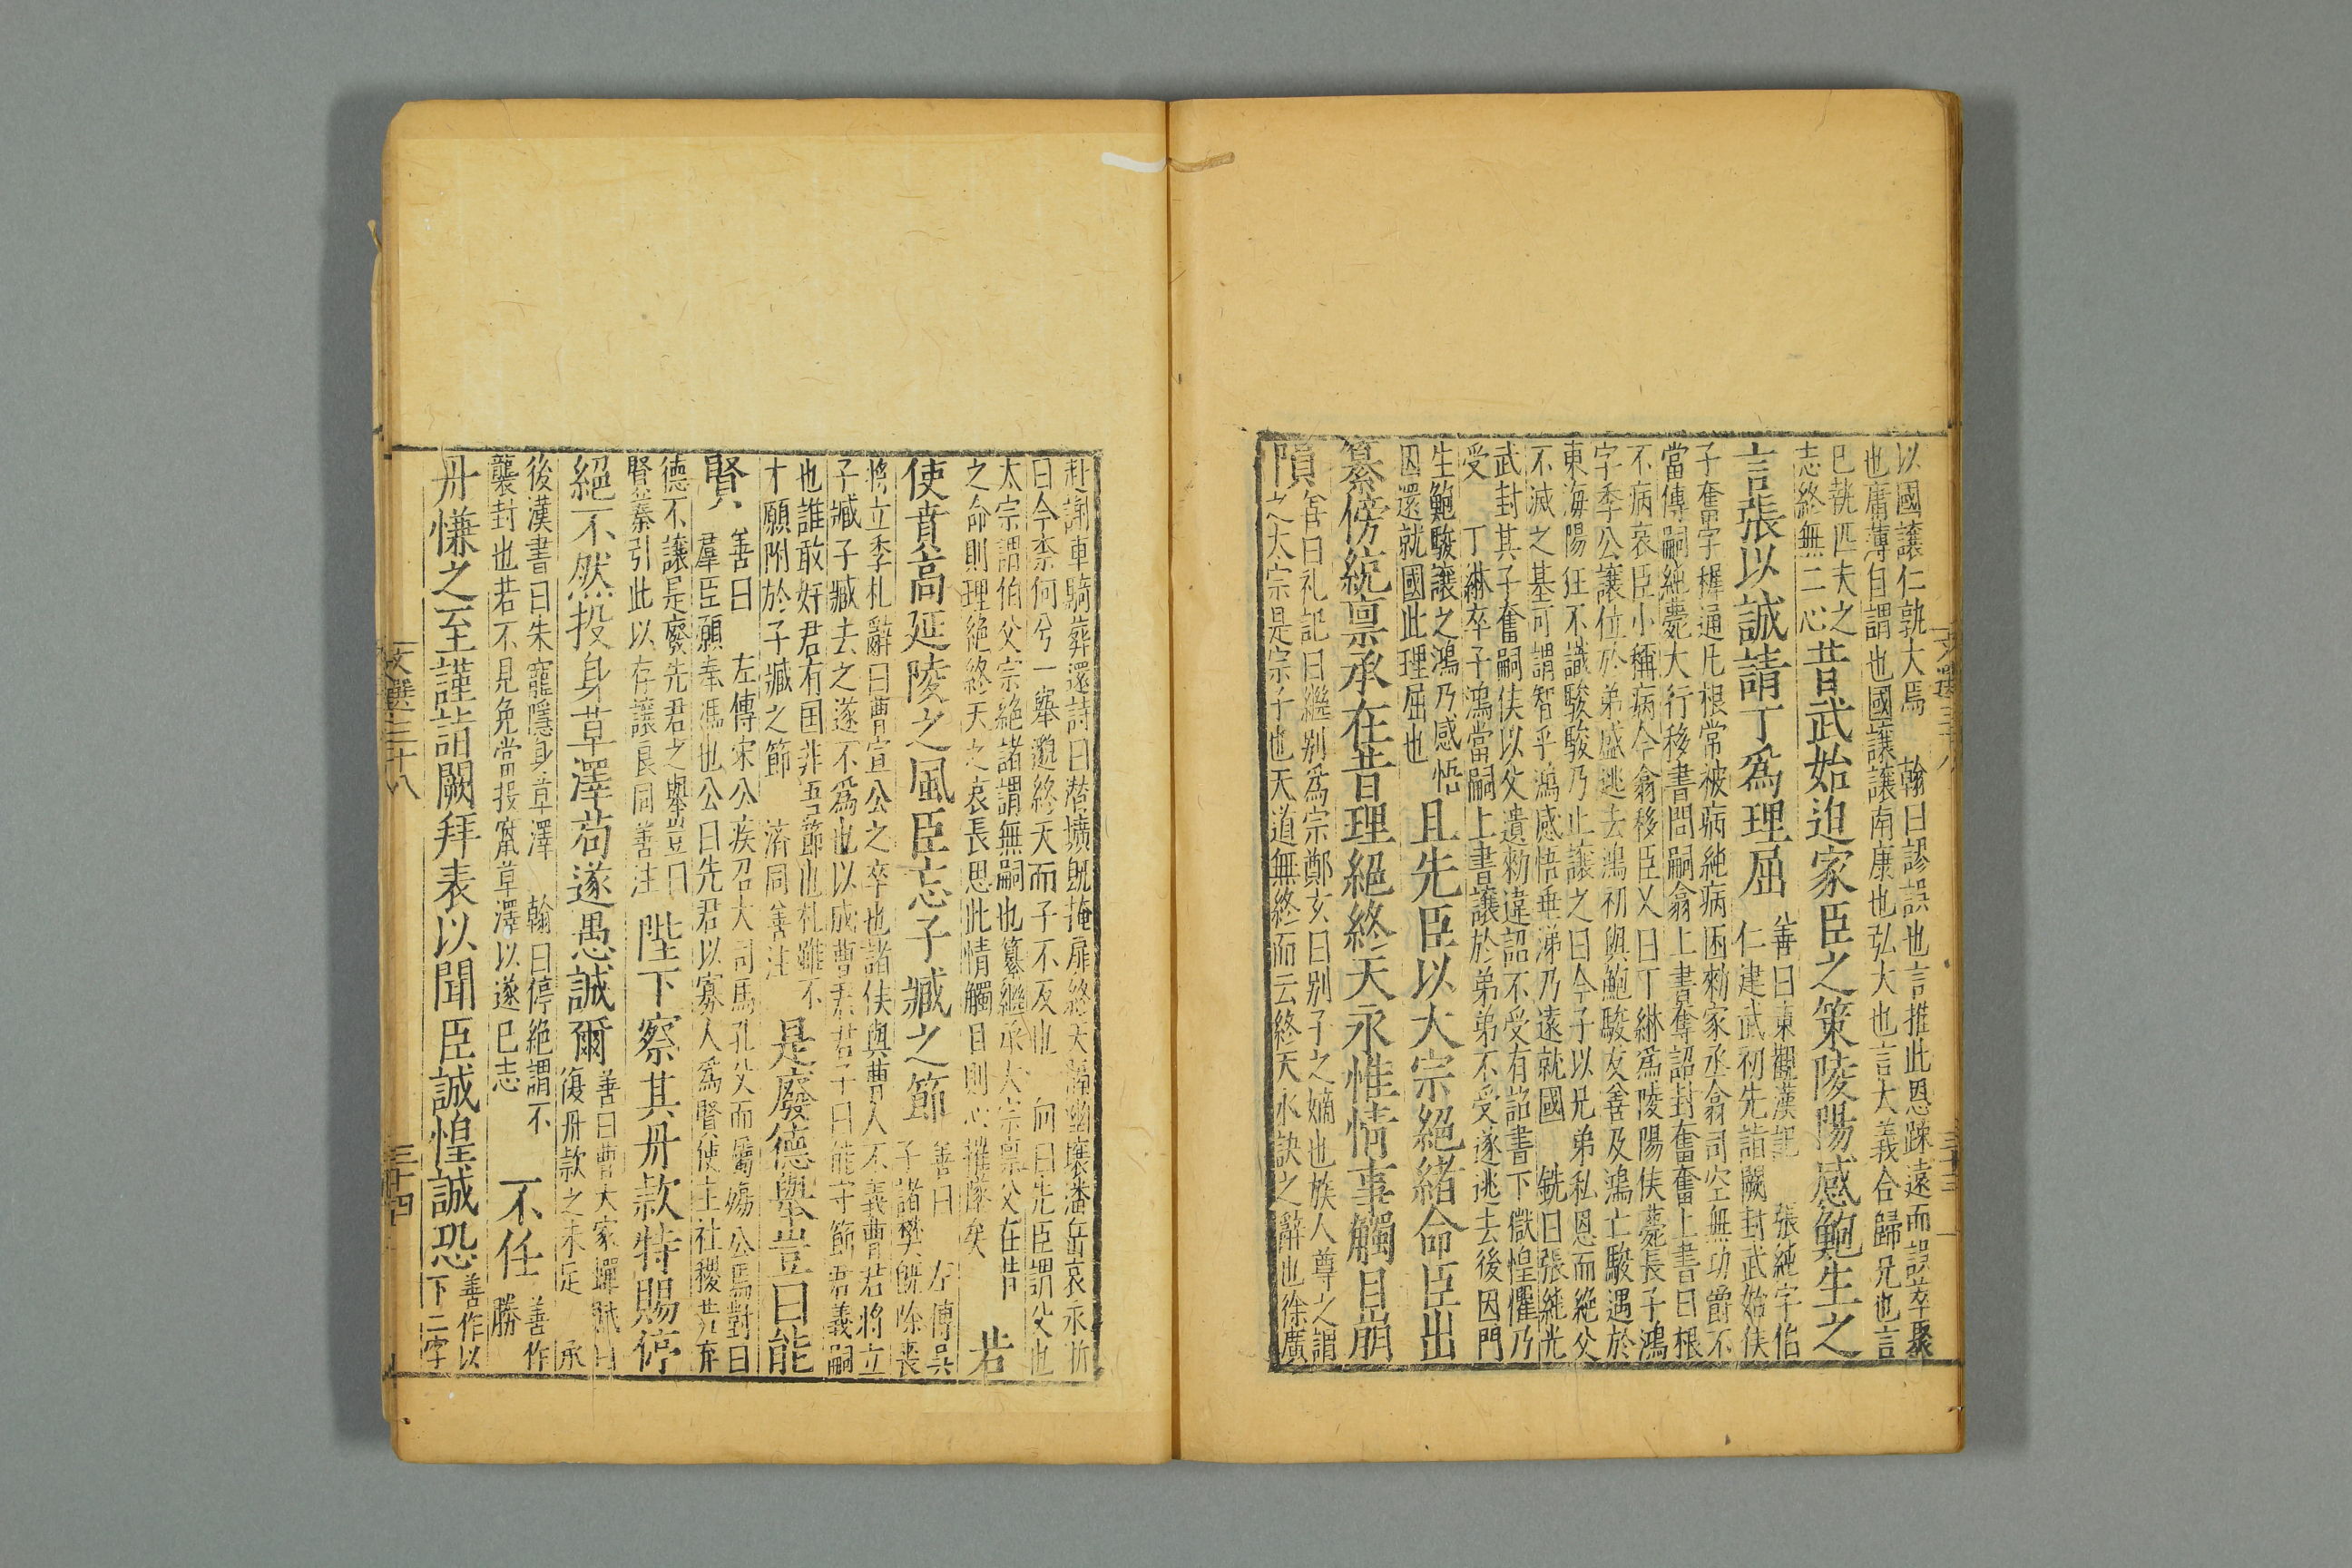 以國讓仁孰大焉 翰曰謬誤也言推此恩踈遠而誤萃聚
也庸薄自謂也國讓讓南康也弘大也言大義合歸兄也言
已執匹夫之
志終無二心
昔武始迫家臣之策陵陽感鮑生之
言張以誠請丁爲理屈
善曰東觀漢記 張純字伯
仁建武初先詣闕封武始侯
子奮字穉通兄根常被病純病困勑家丞翕司空無功爵不
當傳嗣純薨大行移書問嗣翕上書奪詔封奮奮上書曰根
不病哀臣小稱病今翕移臣又曰丁綝爲陵陽侯薨長子鴻
字季公讓位於弟盛逃去鴻初與鮑駿友善及鴻亡駿遇於
東海陽狂不識駿駿乃止讓之曰今子以兄弟私恩而絶父
不滅之基可謂智乎鴻感悟垂涕乃遠就國 銑曰張純光
武封其子奮嗣侯以父遺勑違詔不受有詔書下獄惶懼乃
受 丁綝卒子鴻當嗣上書讓於弟弟不受遂逃去後因門
生鮑駿讓之鴻乃感悟
因還就國此理屈也
且先臣以大宗絕緒命臣出
纂傍統稟承在昔理絕終天永惟情事觸目崩
隕
善曰礼記曰繼别爲宗鄭玄曰别子之嫡也族人尊之謂
之大宗是宗子也天道無終而云終天永訣之辭也徐廣
赴謝車騎葬還詩曰潜壙旣掩扉終天隔幽壤潘岳哀永逝
曰今柰何兮一舉邈終天而子不反也 向曰先臣謂父也
太宗謂伯父宗絶諸謂無嗣也纂繼承大宗稟父在昔
之命則理絶終天之哀長思此情觸目則心摧墜矣
若
使賁高延陵之風臣忘子臧之節
善曰 左傳吳
子諸樊旣除喪
將立季札辭曰曹宣公之卒也諸侯與曹人不義曹君將立
子臧子臧去之遂不爲也以成曹君君子曰能守節君義嗣
也誰敢奸君有国非吾節也札雖不
才願附於子臧之節 濟同善注
是廢德舉豈曰能
賢
善曰 左傳宋公疾召大司馬孔父而屬殤公焉對曰
羣臣願奉馮也公曰先君以寡人爲賢使主社稷若弃
德不讓是廢先君之舉豈曰
賢蓁引此以存讓良同善注
陛下察其丹款特賜停
絕不然投身草澤苟遂愚誠爾
善曰曹大家蟬賦曰
復丹款之未足 承
後漢書曰朱寵隱身草澤 翰曰停絶謂不
襲封也若不見免當投竄草澤以遂已志
不任
善作
勝
丹慊之至謹詣闕拜表以聞臣誠惶誠恐
善作以
下二字
文選三十八
三十四
三十三